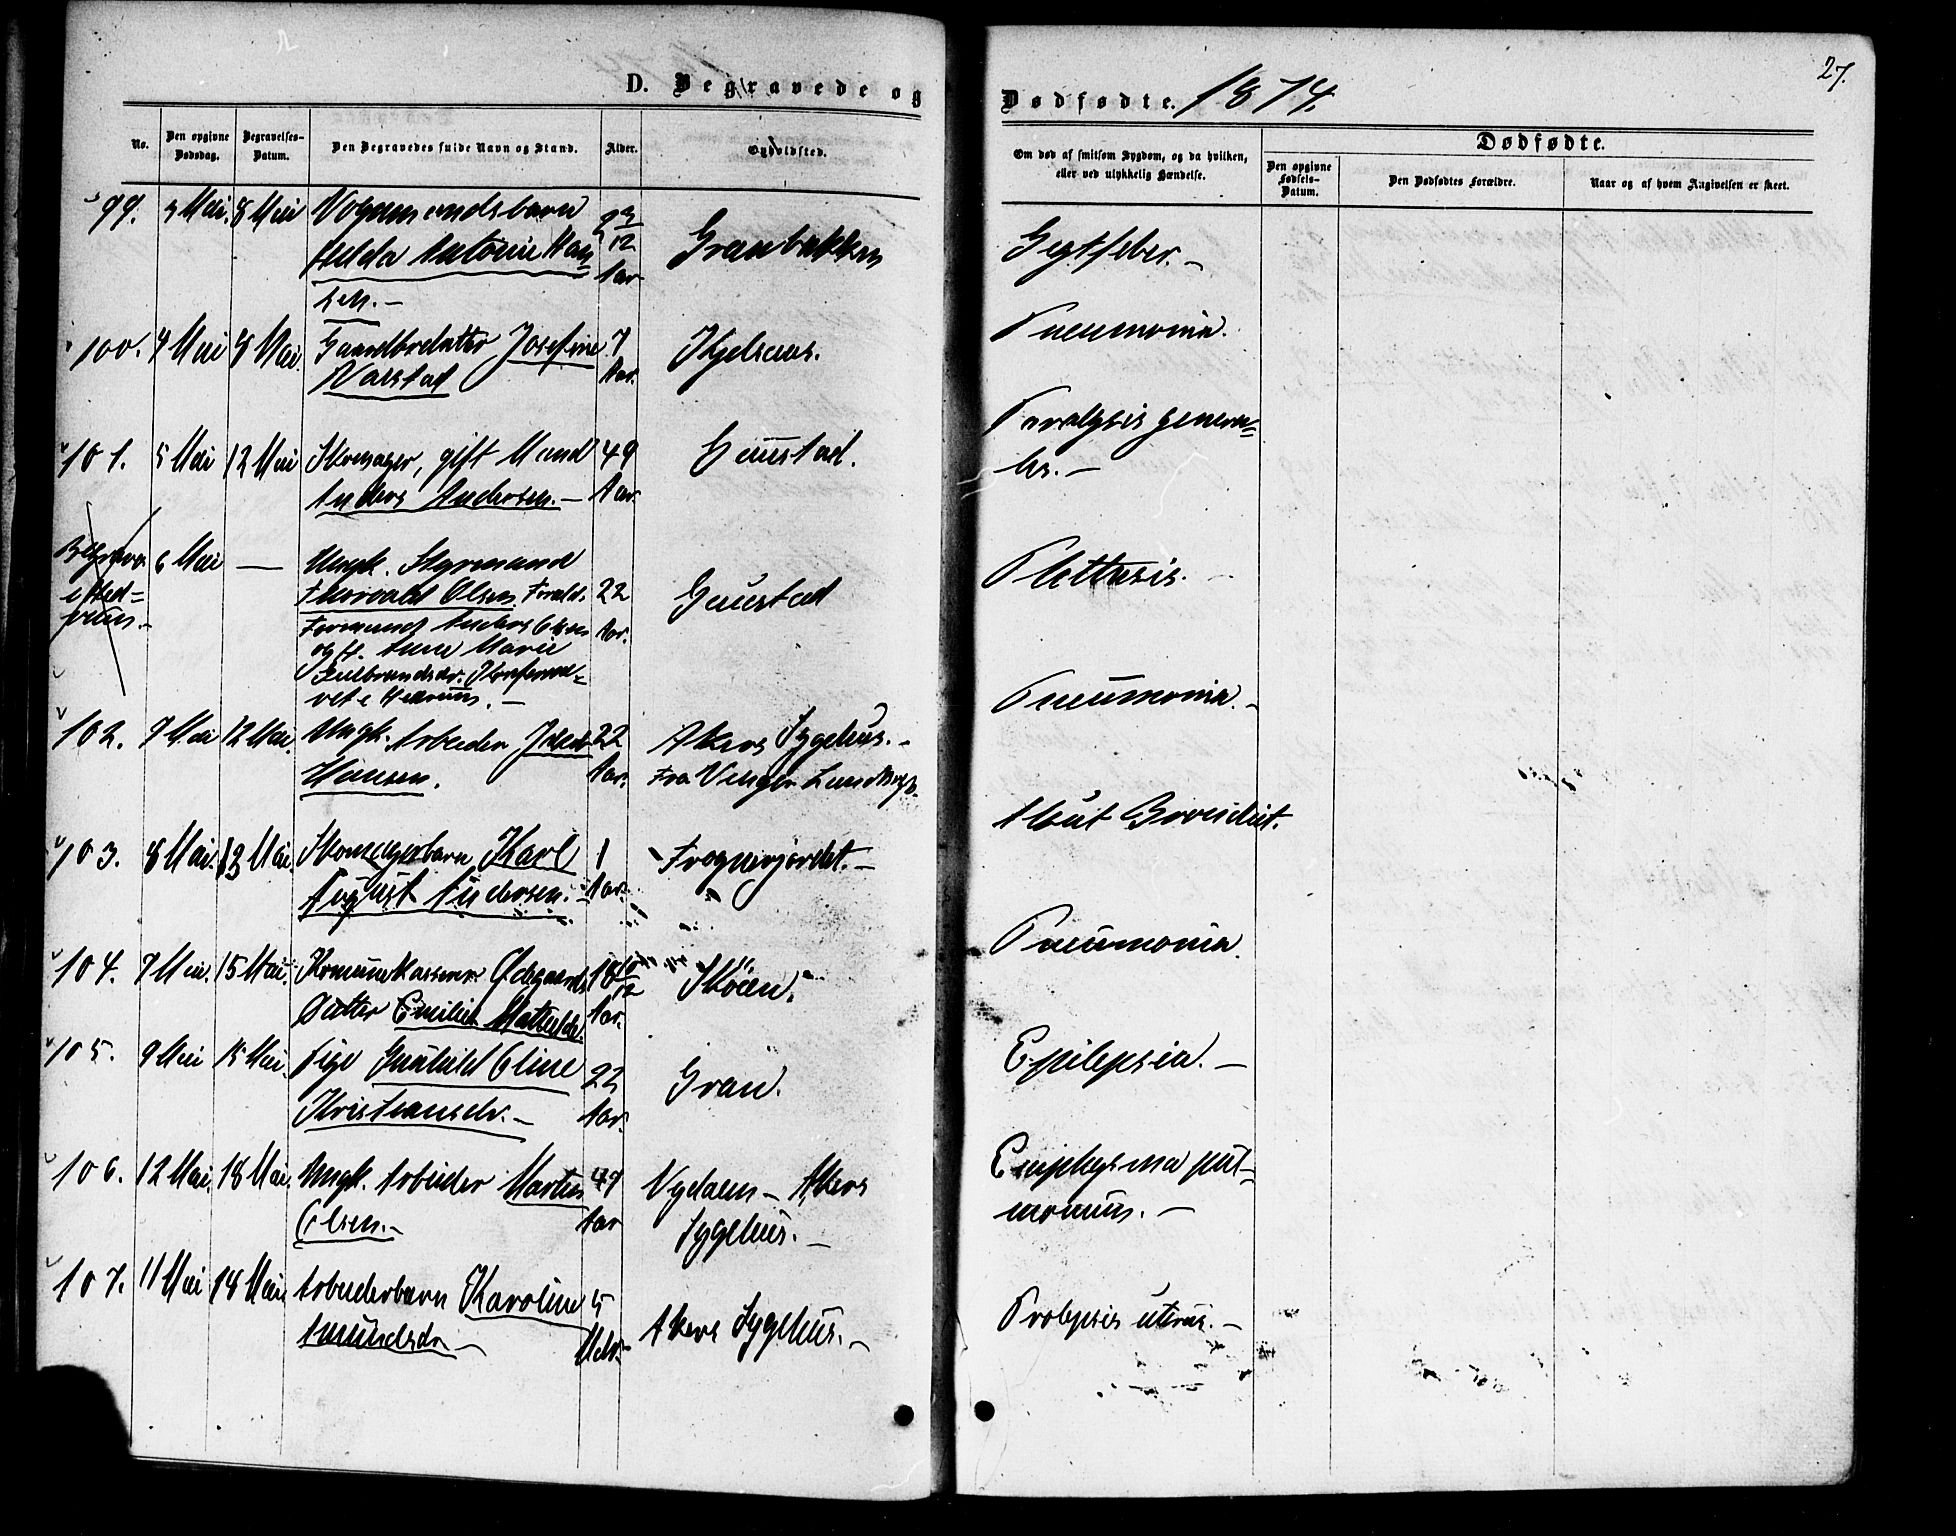 D. Begravede og
No.
Den opgivne Dødsdag.
Begravelses-Datum.
Den Begravedes fulde Navn og Stand.
Alder.
Opholdsted.
99. 3 Mai. 8 Mai
Hilda Antonie Han=
sen.—
2 3/12 Aar
Granbakken
100. 4 Mai 8 Mai. Josefine 7
Aar.
Kjelsaas.
101. 5 Mai 12 Mai Skomager, gift Mand 49
Anders Andersen.— Aar.
Gaustad.
6 Mai — Ungk. Styrmand
Thorvald Olsen. 22
Formand Anders Olsen Aar.
og H. Anne Marie
Gaustad
102. 7 Mai 12 Mai. Ungk. Arbeider 22
Hansen. Aar.
Akers Sygehus.—
Fra Vinger
103. 8 Mai. 13 Mai. Skomagerbarn Karl 1
August Andersen.— Aar.
Frognerjordet.—
104. 7 Mai. 15 Mai. Ødegaards 18 10/12
Datter Emilie Mathilde. Aar.
Skøien.
105. 9 Mai 15 Mai. Pige Gunhild Oline 22
Kristiansdr.— Aar.
Gran.
106. 12 Mai. 18 Mai. Ungk. Arbeider Martin 47
Olsen.— Aar
Nydalen — Akers
Sygehus.—
107. 11 Mai 18 Mai. Arbeiderbarn Karoline 5
Amundsdr.—
Akers Sygehus.—
Dødfødte. 1874.
27.
Om død af smitsom Sygdom, og da hvilken,
eller ved ulykkelig Hændelse.
Dødfødte.
Den opgivne Fødsels-Datum.
Den Dødfødtes Forældre.
Naar og af hvem Angivelsen er skeet.
Gigtfeber.—
Pneumonia.
Paralysis genera=
lis.—
Phthisis.—
Pneumonia.—
Akut Bronchit.
Pneumonia.
Epilepsia.—
Emphysma pul=
monum.—
Prolapsis uterus.—